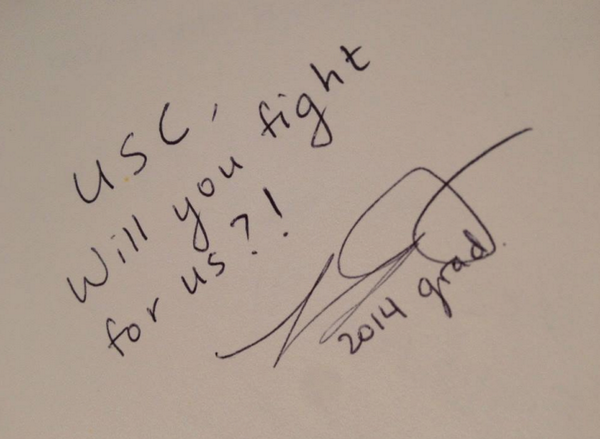 USC,
Will you fight
for us?!
2014 grad.